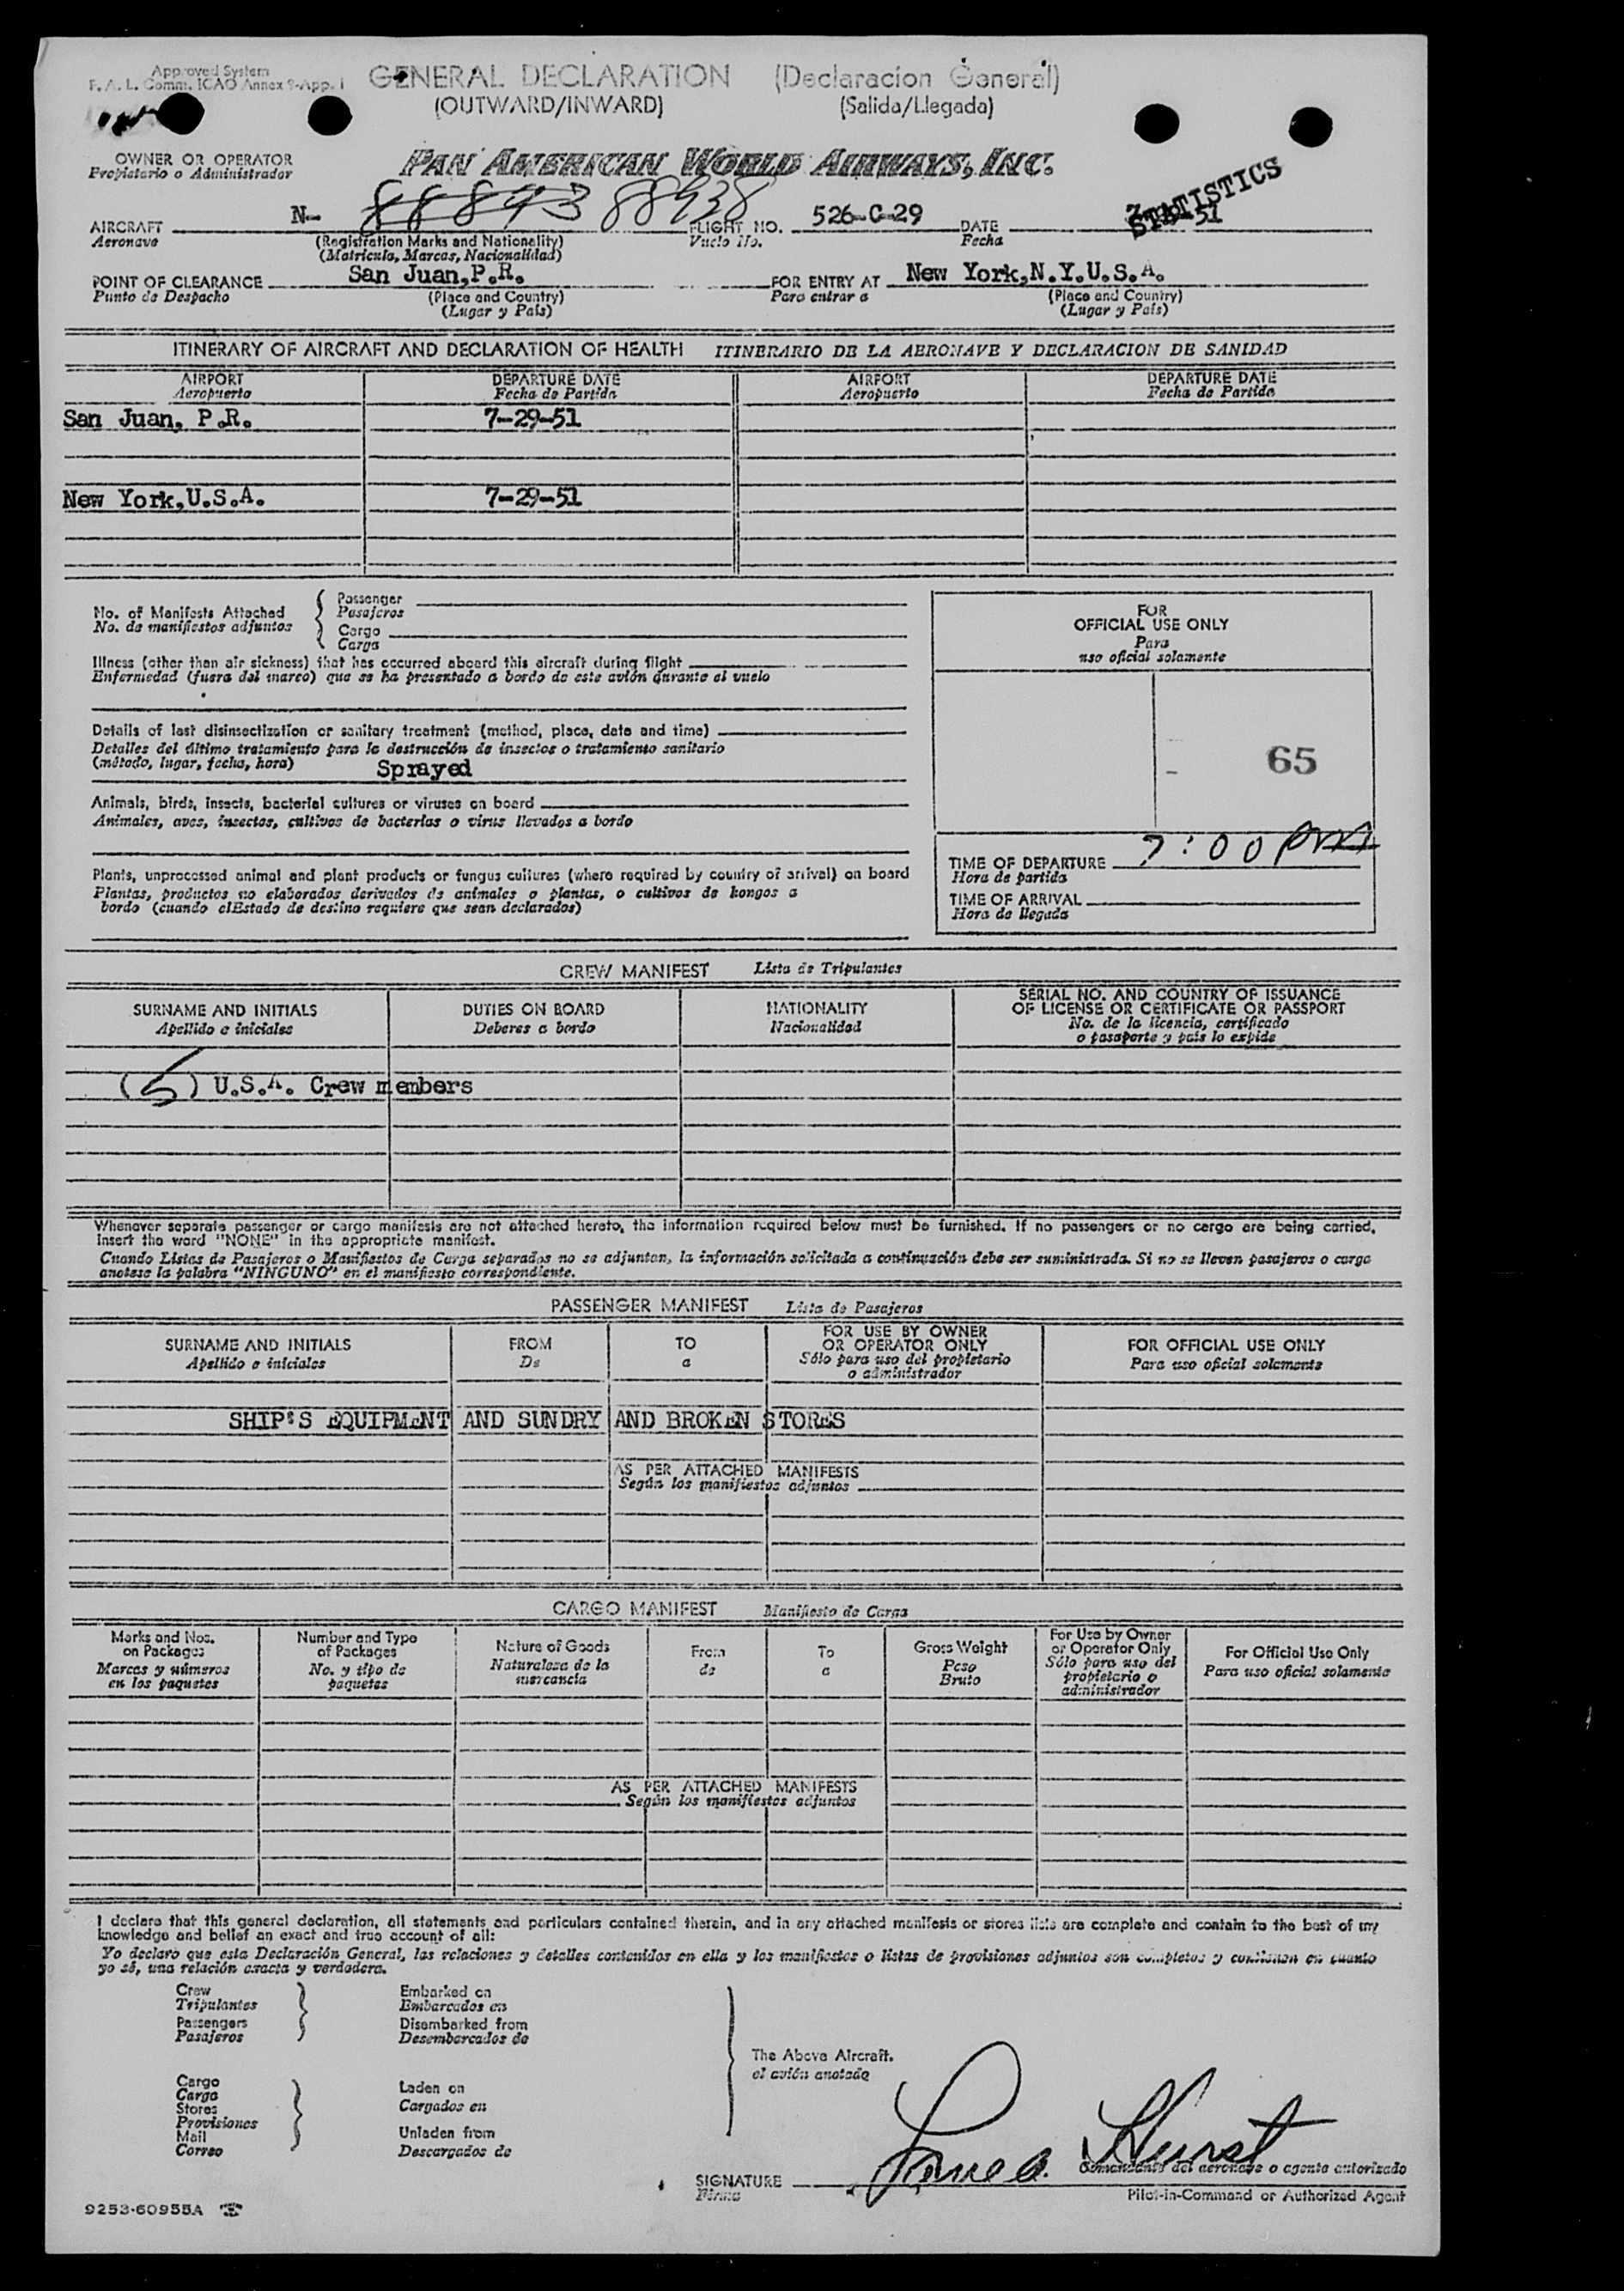 Approved System
F. A. L. Comm. ICAO Annex 9-App. 1
GENERAL DECLARATION (Declaracion General)
(OUTWARD/INWARD) (Salida/Llegada)
OWNER OR OPERATOR
Propietario o Administrador
PAN AMERICAN WORLD AIRWAYS, INC.
STATISTICS
AIRCRAFT N- 88893 88938 FLIGHT NO. 526-C-29 DATE
Aeronave (Registration Marks and Nationality) Vuelo No. Fecha
(Matricula, Marcas, Nacionalidad)
POINT OF CLEARANCE San Juan,P.R. FOR ENTRY AT New York,N.Y.U.S.A.
Punto de Despacho (Place and Country) Para entrar a (Place and Country)
(Lugar y País) (Lugar y País)
ITINERARY OF AIRCRAFT AND DECLARATION OF HEALTH ITINERARIO DE LA AERONAVE Y DECLARACION DE SANIDAD
AIRPORT DEPARTURE DATE AIRPORT DEPARTURE DATE
Aeropuerto Fecha de Partida Aeropuerto Fecha de Partida
San Juan, P.R. 7-29-51
New York,U.S.A. 7-29-51
No. of Manifests Attached
No. de manifiestos adjuntos
Passenger
Pasajeros
Cargo
Carga
Illness (other than air sickness) that has occurred aboard this aircraft during flight
Enfermedad (fuera del mareo) que se ha presentado a bordo de este avión durante el vuelo
Details of last disinsectization or sanitary treatment (method, place, date and time)
Detalles del último tratamiento para la destrucción de insectos o tratamiento sanitario
(método, lugar, fecha, hora) Sprayed
Animals, birds, insects, bacterial cultures or viruses on board
Animales, aves, insectos, cultivos de bacterias o virus llevados a bordo
Plants, unprocessed animal and plant products or fungus cultures (where required by country of arrival) on board
Plantas, productos no elaborados derivados de animales o plantas, o cultivos de hongos a
bordo (cuando elEstado de destino requiere que sean declarados)
FOR
OFFICIAL USE ONLY
Para
uso oficial solamente
65
TIME OF DEPARTURE 7:00 PM
Hora de partida
TIME OF ARRIVAL
Hora de llegada
CREW MANIFEST Lista de Tripulantes
SURNAME AND INITIALS DUTIES ON BOARD NATIONALITY SERIAL NO. AND COUNTRY OF ISSUANCE
OF LICENSE OR CERTIFICATE OR PASSPORT
Apellido e iniciales Deberes a bordo Nacionalidad No. de la licencia, certificado
o pasaporte y país lo expide
(5) U.S.A. Crew members
Whenever separate passenger or cargo manifests are not attached hereto, the information required below must be furnished. If no passengers or no cargo are being carried,
insert the word "NONE" in the appropriate manifest.
Cuando Listas de Pasajeros o Manifiestos de Carga separados no se adjuntan, la información solicitada a continuación debe ser suministrada. Si no se lleven pasajeros o carga
anotese la palabra "NINGUNO" en el manifiesto correspondiente.
PASSENGER MANIFEST Lista de Pasajeros
SURNAME AND INITIALS FROM TO FOR USE BY OWNER FOR OFFICIAL USE ONLY
OR OPERATOR ONLY
Apellido e iniciales De a Sólo para uso del propietario Para uso oficial solamente
o administrador
SHIP'S EQUIPMENT AND SUNDRY AND BROKEN STORES
AS PER ATTACHED MANIFESTS
Según los manifiestos adjuntos
CARGO MANIFEST Manifiesto de Carga
Marks and Nos.
on Packages
Marcas y números
en los paquetes
Number and Type
of Packages
No. y tipo de
paquetes
Nature of Goods
Naturaleza de la
mercancía
From
de
To
a
Gross Weight
Peso
Bruto
For Use by Owner
or Operator Only
Sólo para uso del
propietario o
administrador
For Official Use Only
Para uso oficial solamente
AS PER ATTACHED MANIFESTS
Según los manifiestos adjuntos
I declare that this general declaration, all statements and particulars contained therein, and in any attached manifests or stores lists are complete and contain to the best of my
knowledge and belief an exact and true account of all:
Yo declaro que esta Declaración General, las relaciones y detalles contenidos en ella y los manifiestos o listas de provisiones adjuntos son completos y contienen en cuanto
yo sé, una relación exacta y verdadera.
Crew
Tripulantes
Passengers
Pasajeros
Embarked on
Embarcados en
Disembarked from
Desembarcados de
Cargo
Carga
Stores
Provisiones
Mail
Correo
Laden on
Cargados en
Unladen from
Descargados de
The Above Aircraft.
el avión anotado
SIGNATURE Hurst
Firma
Comandante del aeronave o agente autorizado
Pilot-in-Command or Authorized Agent
9253-60955A